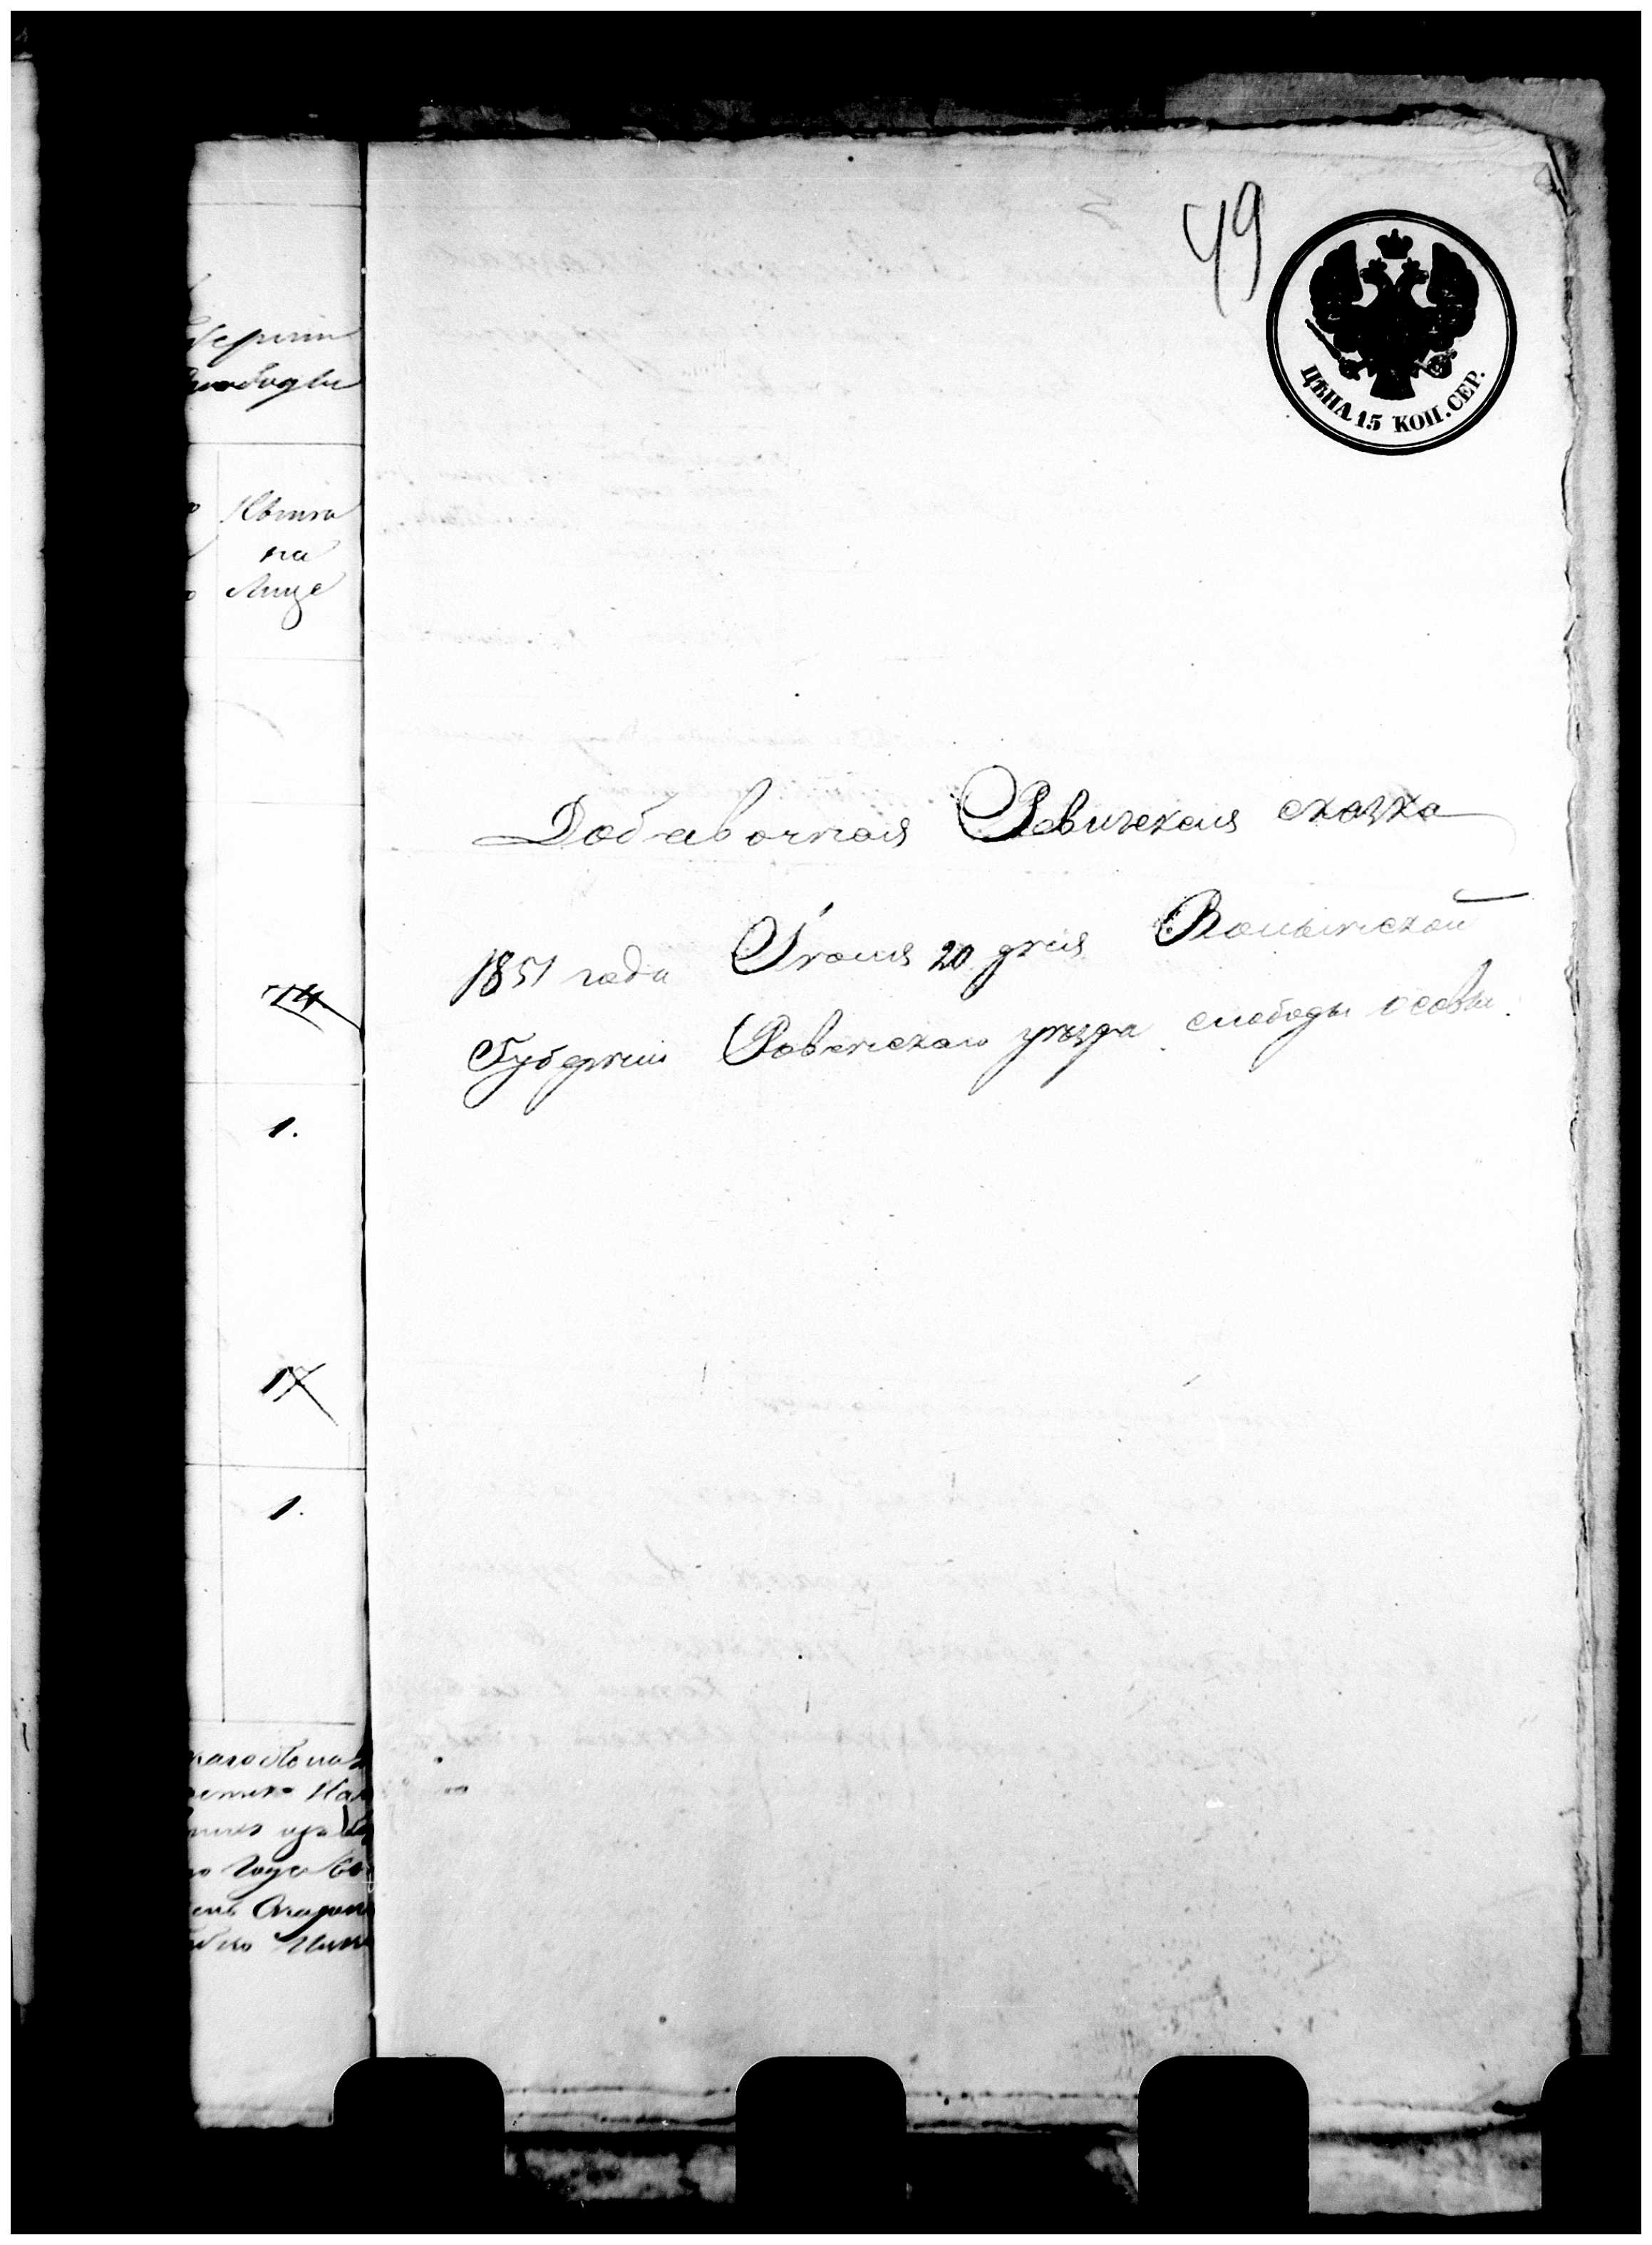 49
ЦѢНА 15 КОП. СЕР.
Добавочная Ревизская сказка
1851 года Іюня 20 дня Волынской
Губерніи Ровенскаго уѣзда слободы Осовы.
на
Лице
14
1.
17
1.